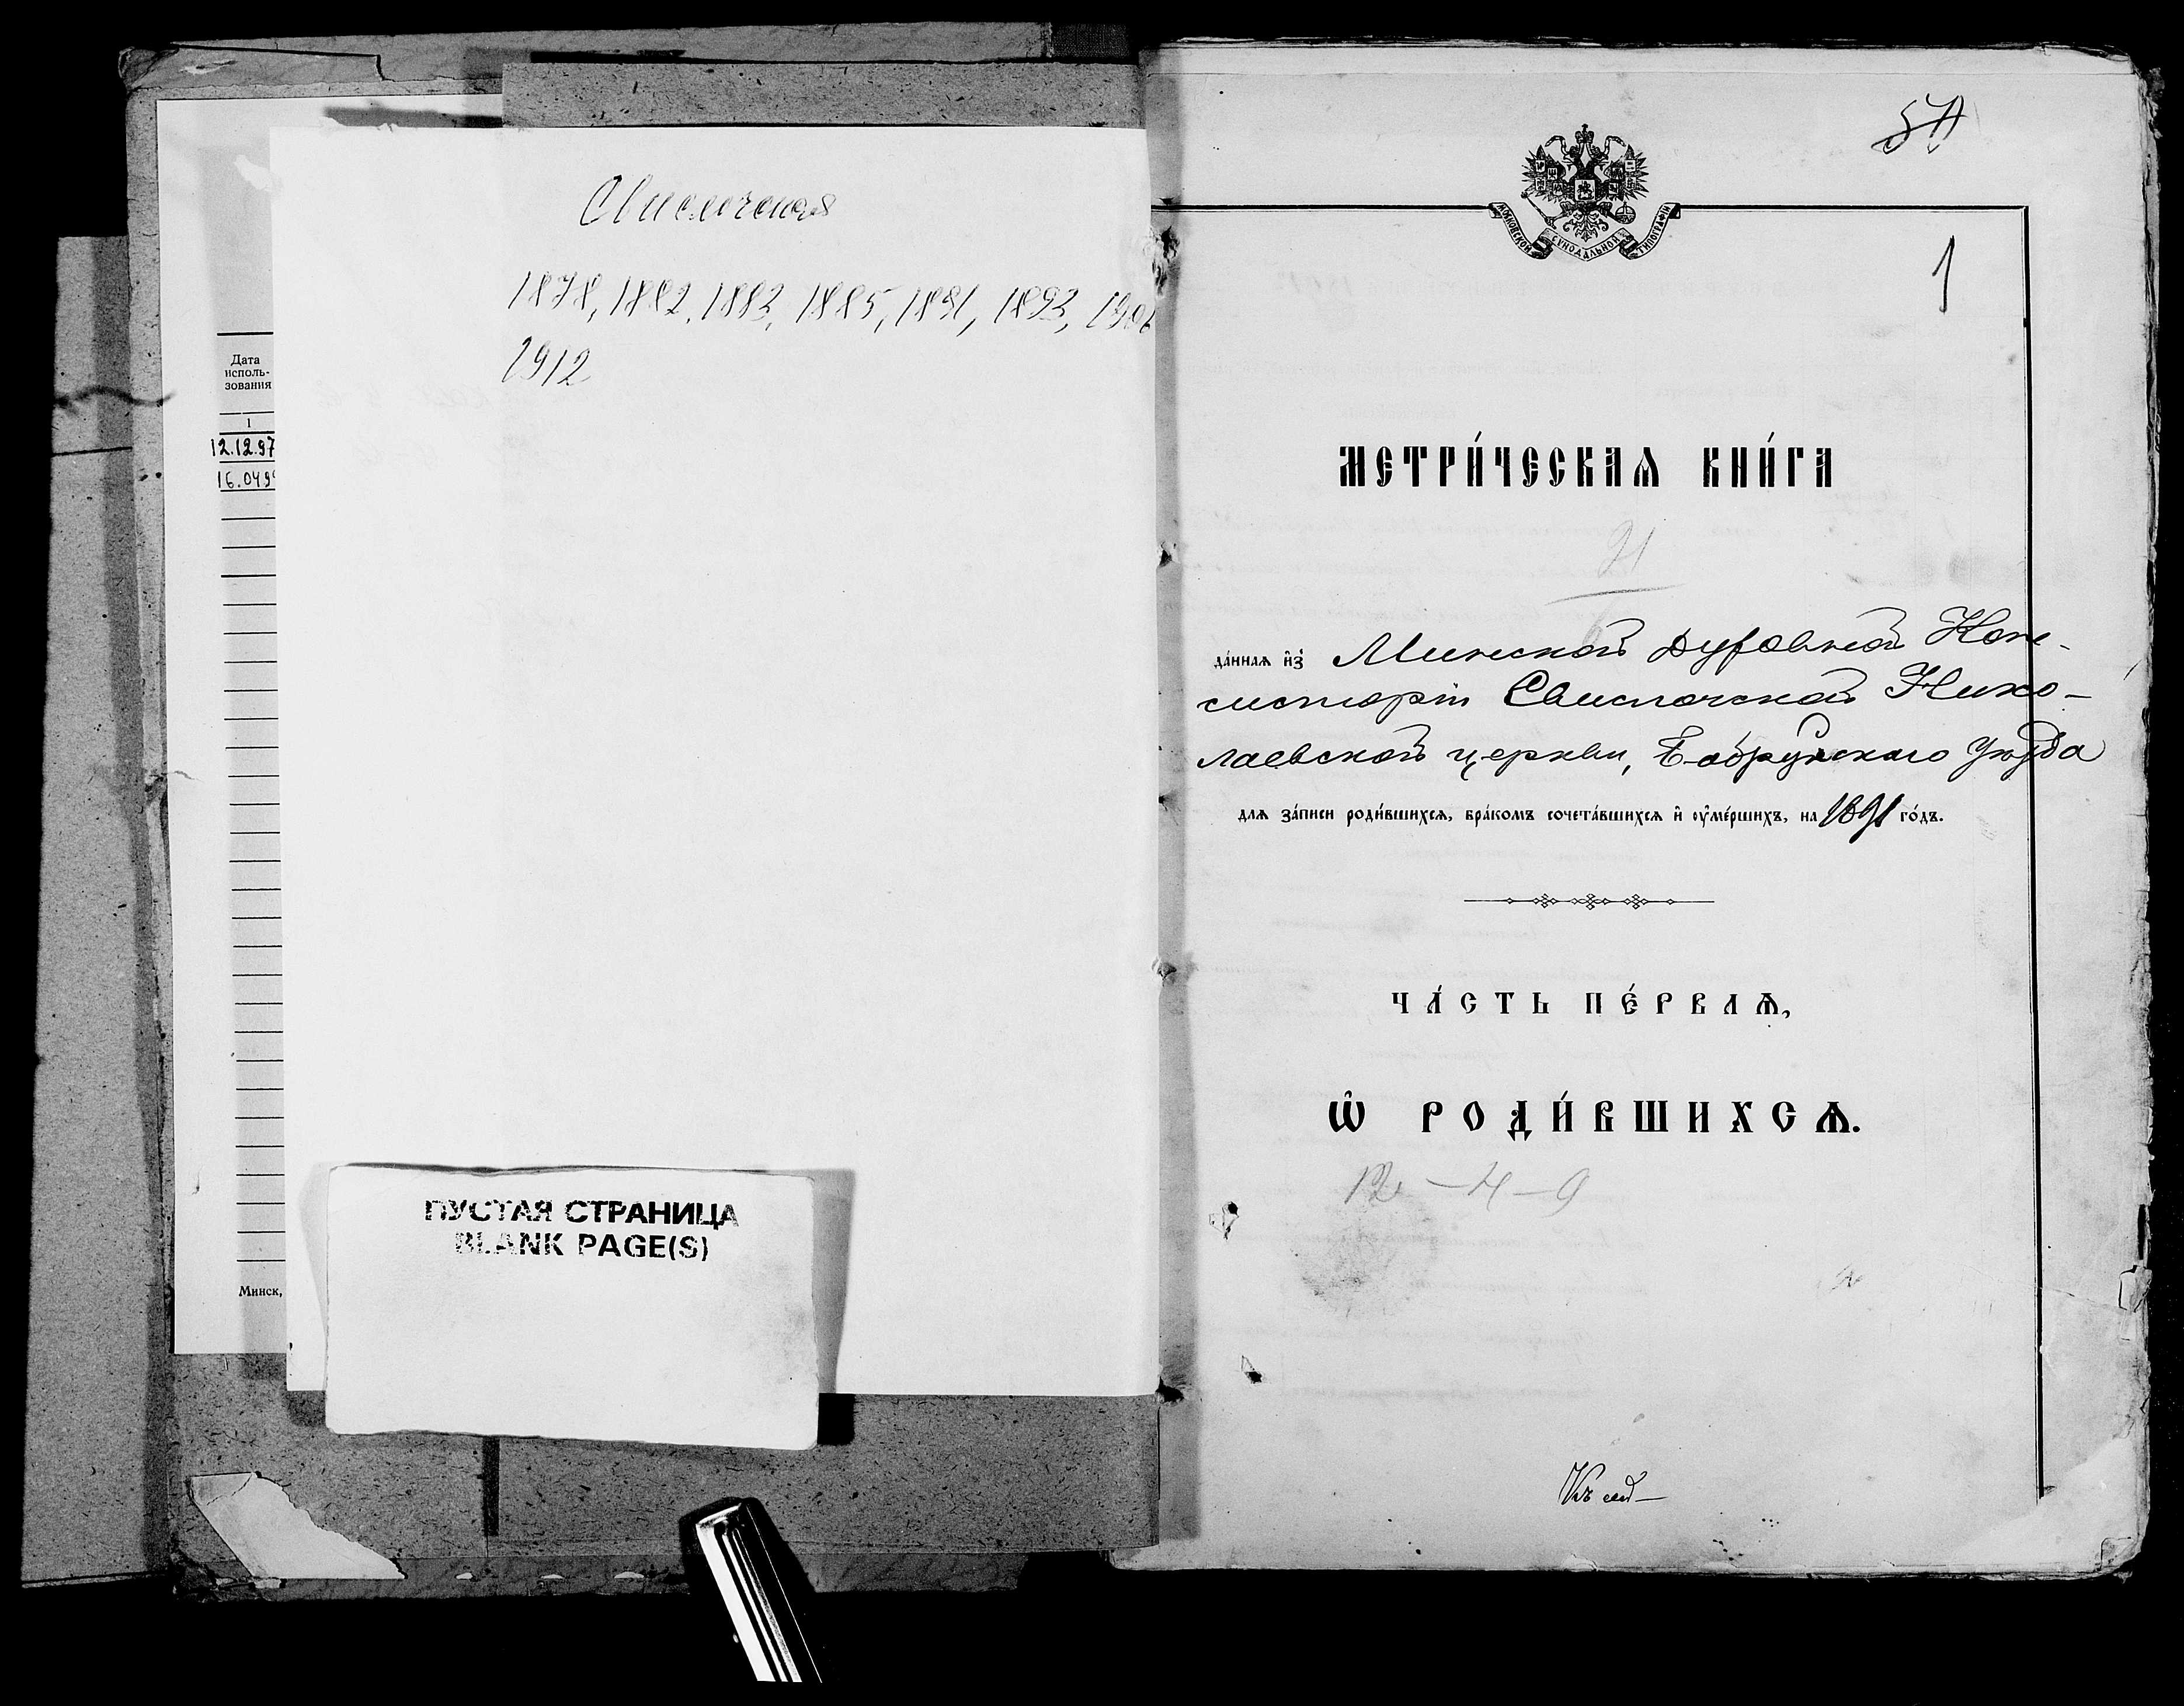 Свислочская
1878, 1882, 1883, 1885, 1891, 1893, 1906
1912
Дата
исполь-
зования
1
12.12.97
16.04.9
Минск,
ПУСТАЯ СТРАНИЦА
BLANK PAGE(S)
МОСКОВСКОЙ СѴНОДАЛЬНОЙ ТИПОГРАФІИ
1
МЕТРИ́ЧЕСКАѦ КНИ́ГА
да́ннаѧ и҆зъ Минской Духовной Кон-
систоріи Свислочской Нико-
лаевской церкви, Бобруйскаго уѣзда
длѧ за́писи роди́вшихсѧ, бра́комъ сочета́вшихсѧ и҆ ᲂу҆ме́ршихъ, на 1891 го́дъ.
ЧА́СТЬ ПЕ́РВАѦ,
Ѽ РОДИ́ВШИХСѦ.
12 – 4 – 9